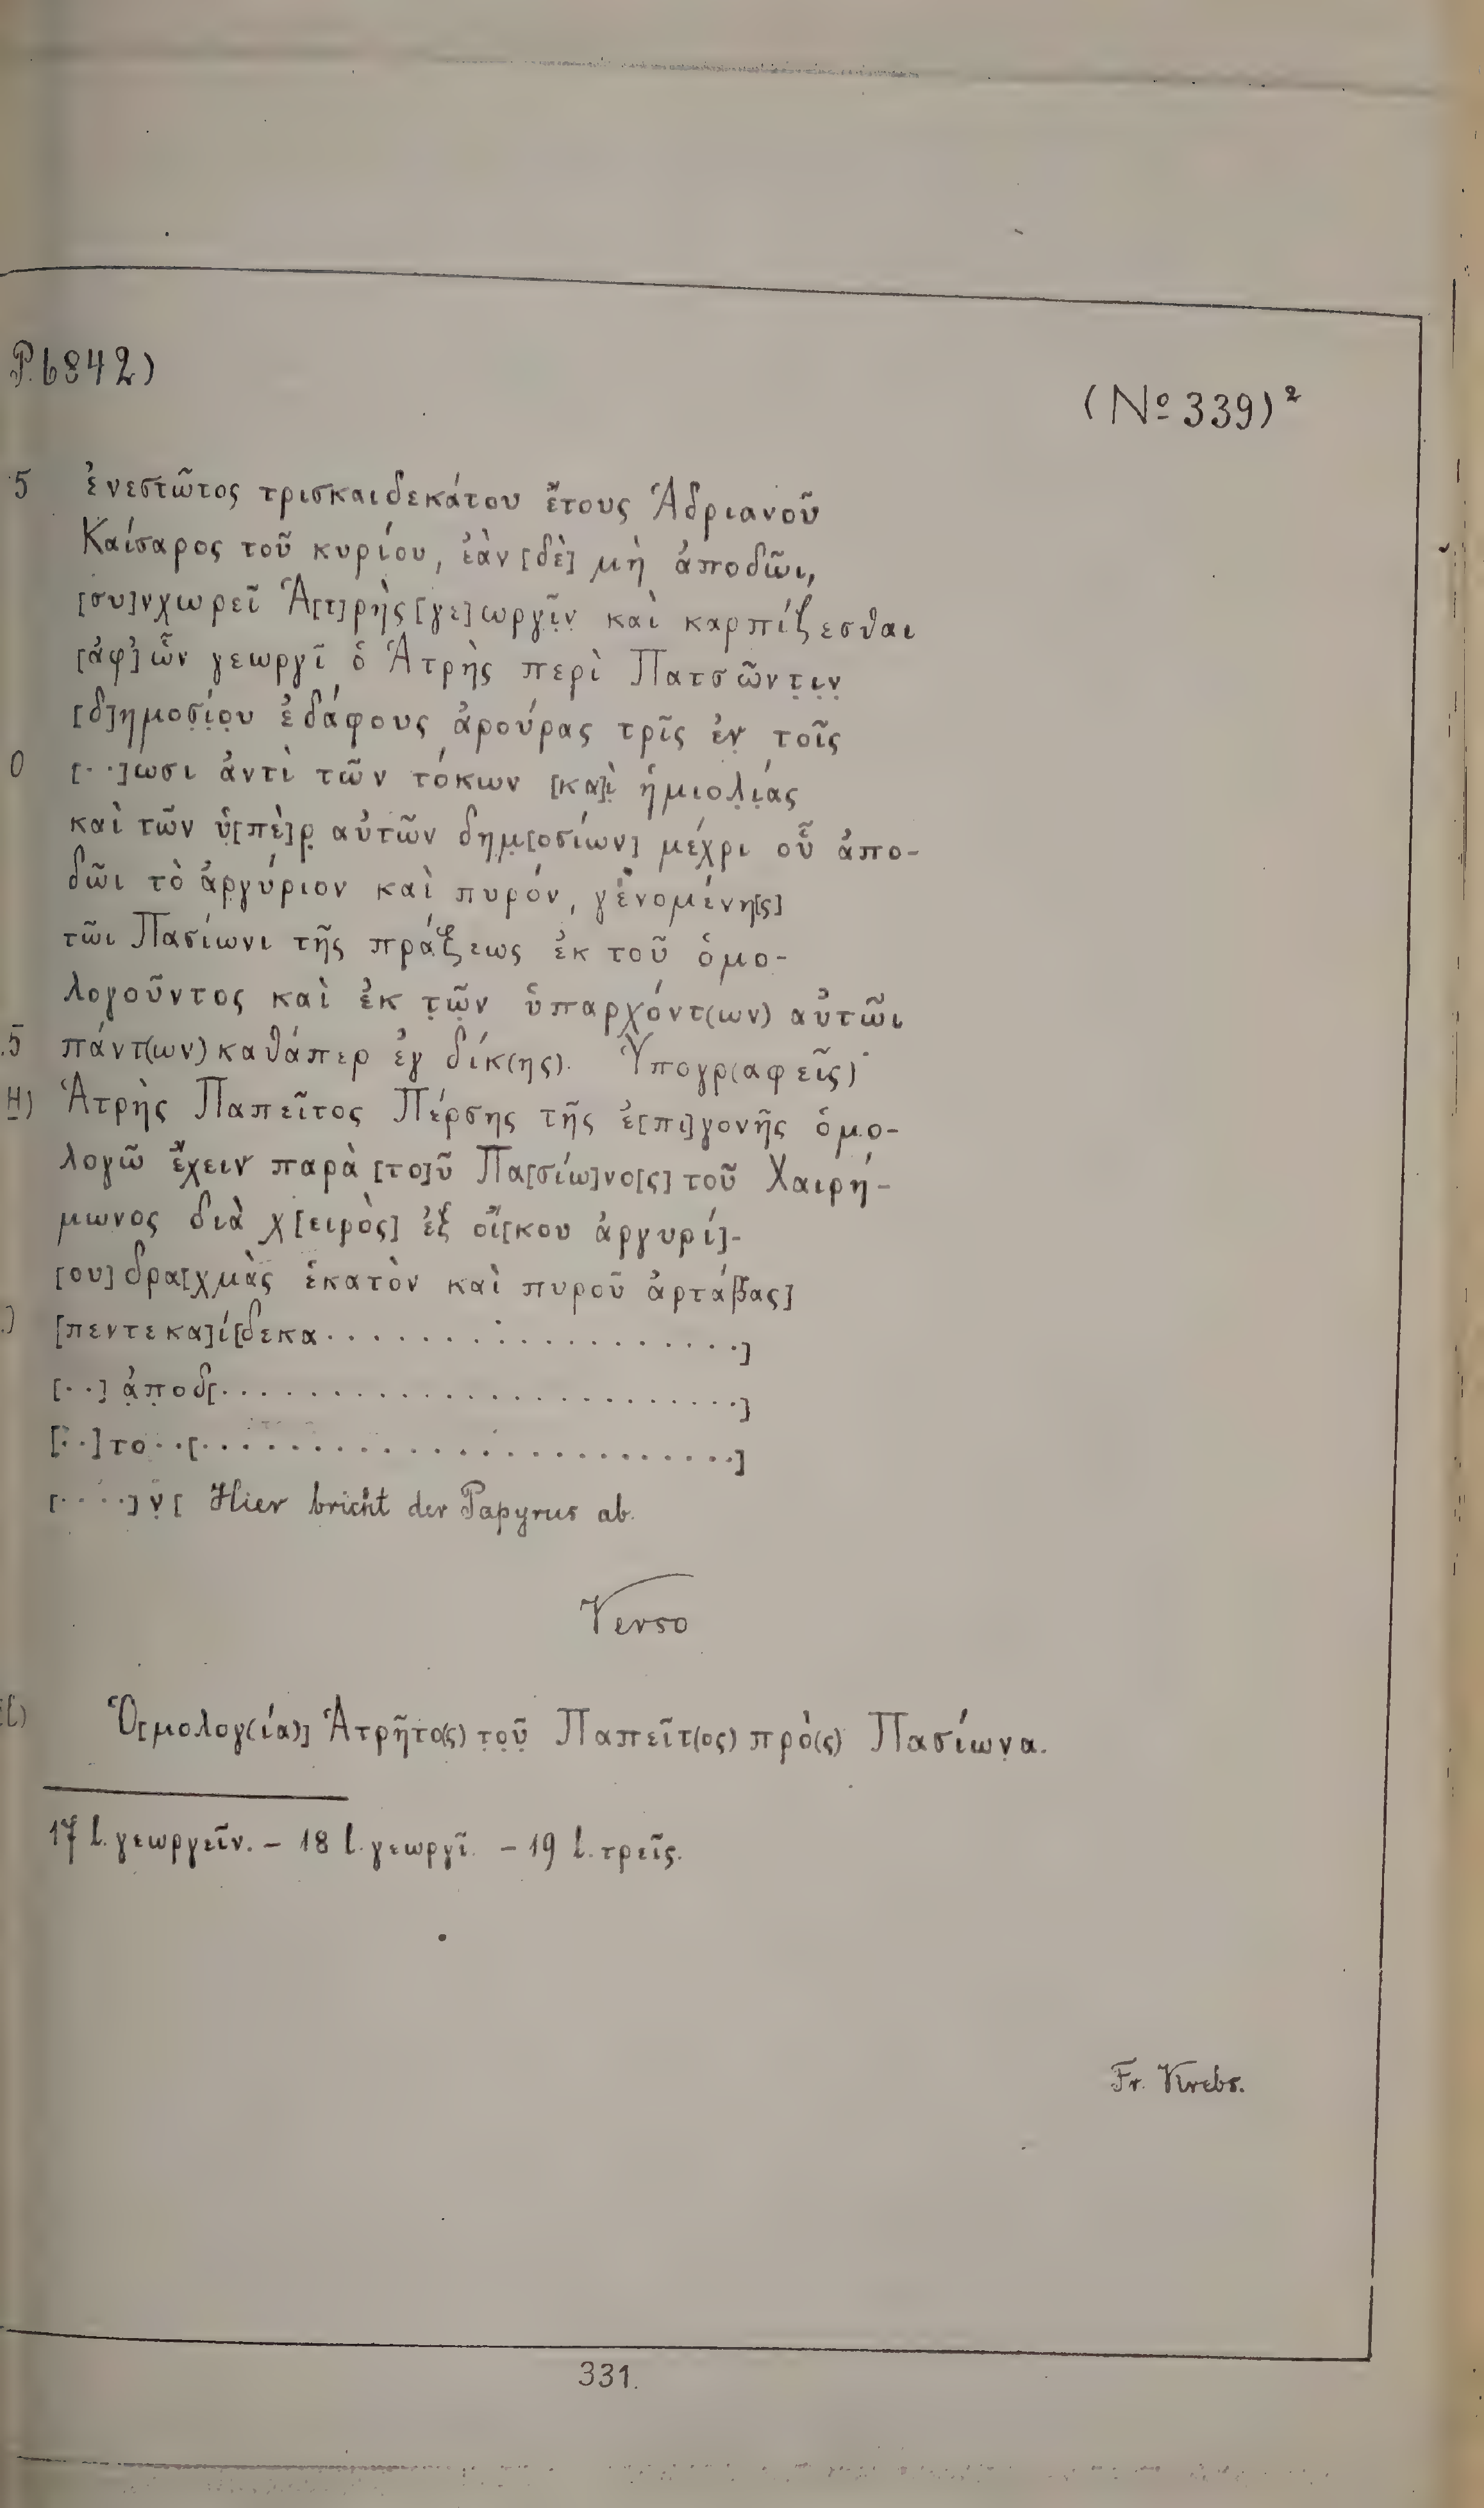 P. 6842)
(Nº 339)²
5 ἐνεστῶτος τρισκαιδεκάτου ἔτους Ἁδριανοῦ
Καίσαρος τοῦ κυρίου, ἐὰν [δὲ] μὴ ἀποδῶι,
[συ]νχωρεῖ Ἁ[τ]ρὴς [γε]ωργῖ̣ν̣ καὶ καρπίζεσθαι
[ἀφ᾽] ὧν γεωργῖ ὁ Ἁτρὴς περὶ Πατσῶντ̣ι̣ν̣
[δ]ημο̣σ̣ί̣ο̣υ ἐδάφους ἀρούρας τρῖς ἐν̣ τοῖς
0 [··]ωσι ἀντὶ τῶν τόκων [κα]ὶ̣ ἡμιολ̣ί̣ας
καὶ τῶν ὑ̣[πὲ]ρ̣ αὐτῶν δημ̣[οσίων] μέχρι οὗ ἀπο-
δῶι τὸ ἀργύριον καὶ πυρόν, γενομένη[ς]
τῶι Πασίωνι τῆς πράξεως ἐκ τοῦ ὁμο-
λογοῦντος καὶ ἐκ τ̣ῶ̣ν ὑπαρχόντ(ων) αὐτῶι
5 πάντ(ων) καθάπερ ἐγ δίκ(ης). Ὑπογρ(αφεῖς)·
H) Ἁτρὴς Παπεῖτος Πέρσης τῆς ἐ[πι]γονῆς ὁμο-
λογῶ ἔχειν παρὰ [το]ῦ Πα[σίω]νο[ς] τοῦ Χαιρή-
μωνος διὰ χ[ειρὸς] ἐξ οἴ[κου ἀργυρί]-
[ου] δρα[χμὰς ἑκατὸν καὶ πυροῦ ἀρτάβας]
[πεντεκα]ί[δεκα . . . . . . . . . . . . . . . . . .]
[··] ἀ̣π̣οδ[. . . . . . . . . . . . . . . . . . . . . .]
[··]το··[. . . . . . . . . . . . . . . . . . . . . . .]
[····]ν̣[ Hier bricht der Papyrus ab.
Verso
Ὁ[μολογ(ία)] Ἁτρῆτο(ς) τ̣ο̣ῦ̣ Παπεῖτ(ος) πρὸ(ς) Πασίων̣α.
17 l. γεωργεῖν. – 18 l. γεωργῖ. – 19 l. τρεῖς.
Fr. Krebs.
331.